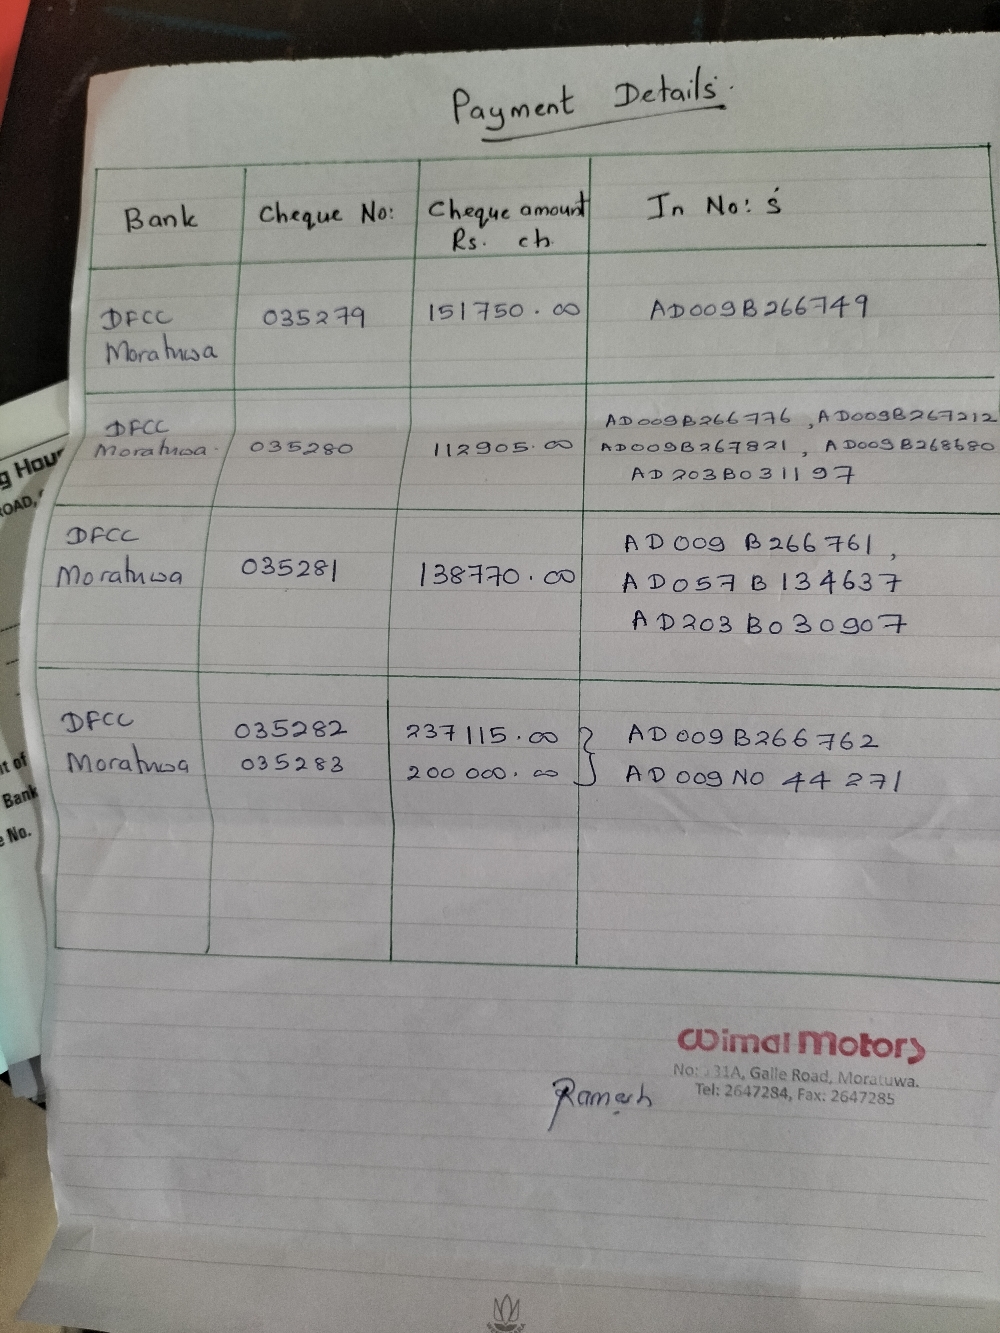 Payment Details.
Bank
Cheque No:
Cheque amount
Rs. ch.
In No:s
DFCC
Moratuwa
035279
151750.00
AD009B266749
DFCC
Moratuwa.
035280
112905.00
AD009B266776, AD009B267212
AD009B267821, AD009B268680
AD203B031197
DFCC
Moratuwa
035281
138770.00
AD009 B266761,
AD057B134637
AD203 B030907
DFCC
Moratuwa
035282
035283
237115.00
200000.00
AD009B266762
AD009N044271
Wimal Motors
31A, Galle Road, Moratuwa.
Tel: 2647284, Fax: 2647285
Ramesh
g Hour
ROAD,
t of
Bank
No.